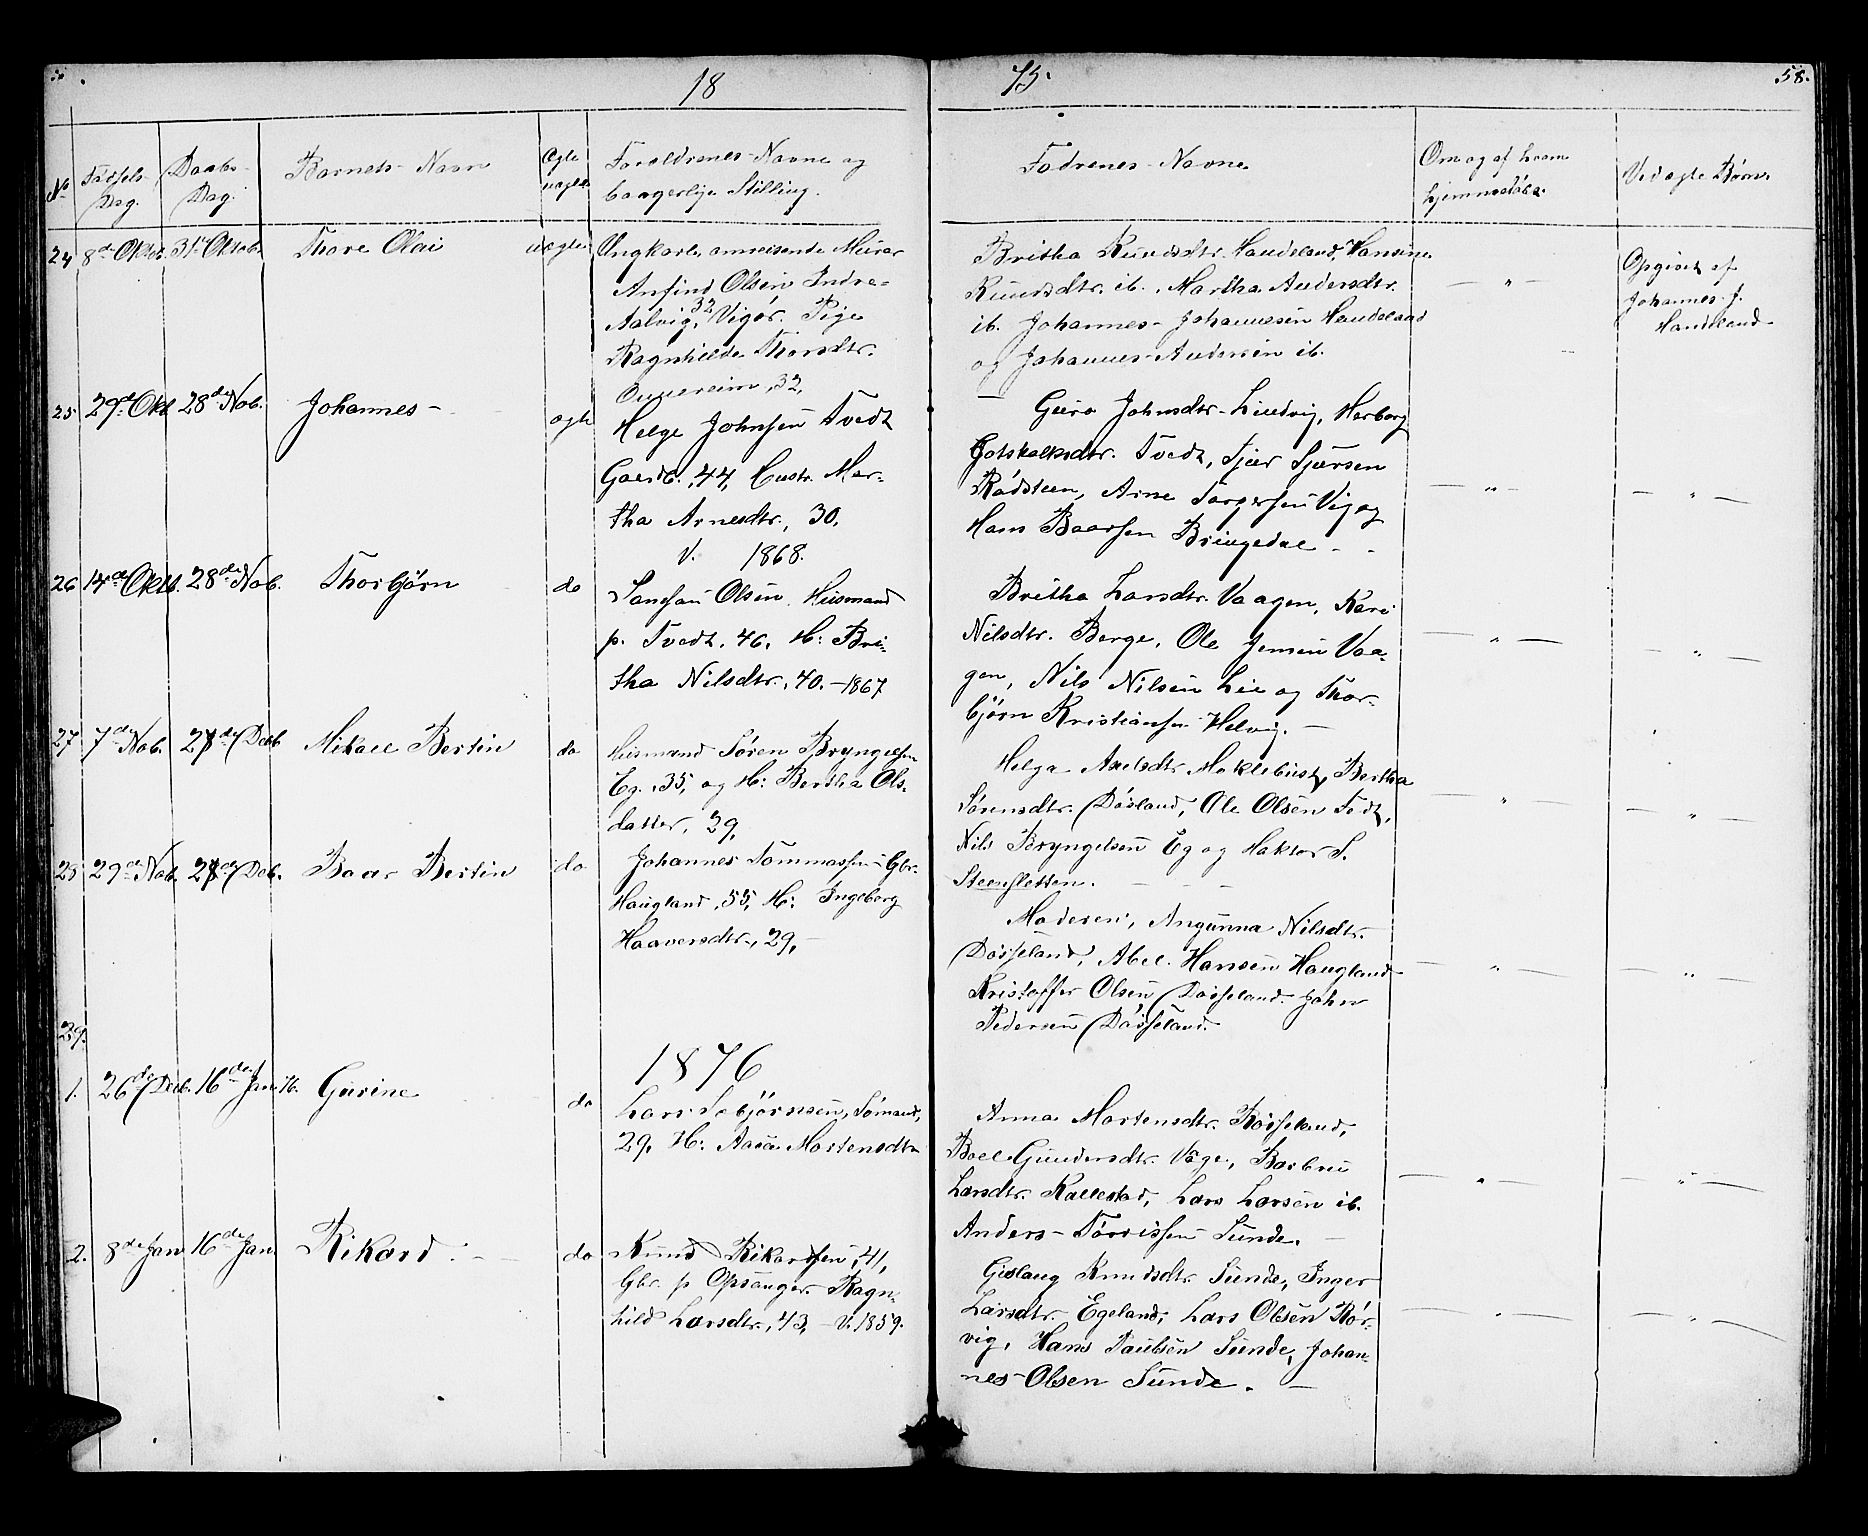 18 75. 58.
No
Födsels-
Dag.
Daabs-
Dag.
Barnets Navn
Ægte
uægte
Foreldrenes Navne og
borgerlige Stilling.
Fadrenes Navne
Om og af hvem
hjemmedöbt.
Ved ægte Börn.
24 8de Oktob. 31te Oktob. Thore Olai uægte
Ungkarl, omreisende Murer
Anfind Olsen Indre-
Aalvig, 32, Vigör. Pige
Ragnhilde Thorsdtr.
32.
Britha Knudsdtr. Handeland, Hansine
Knudsdtr. ib., Martha Andersdtr.
ib. Johannes Johannessen Handeland
og Johannes Andersen ib.
— " —
Opgivet af
Johannes J.
Handeland
25 29de Okt. 28de Nob. Johannes - ægte
Helge Johnsen Tvedt
Gaardb., 44, Hustr. Mar-
tha Arnesdtr., 30.
V. 1868.
Guro Johnsdtr. Lindvig, Herborg
Gotskalksdtr. Tvedt, Sjur Sjursen
Rödsteen, Arne Torgersen Vig og
Hans Baarsen Bringedal - -
— " — — " —
26 14de Oktb. 28de Nob. Thorbjörn do
Olsen Husmand
p. Tvedt. 46. H: Bri-
tha Nilsdtr., 40. - 1867
Britha Larsdtr. Vaagen, Kari
Nilsdtr. Berge, Ole Jensen Vaa-
gen, Nils Nilsen Lie og Thor-
björn Kristiansen Helvig. —
— " — — " —
27 7de Nob. 27de Decb. Mikael Bertin do
Husmand Sören Bryngelsen
Eg. 35, og H: Bertha Ols-
datter, 29,
Helga Axelsdtr. Moklebust, Bertha
Sörensdtr. Dösland, Ole Olsen Tvedt,
Nils Bryngelsen Eg og Haktor S.
Steensletten. - - -
— " — — " —
28 29de Nob. 27de Deb. Baar Bertin do
Johannes Tommassen Gbr.
Haugland, 55, H: Ingeborg
Haaversdtr., 29, —
Moderen, Angunna Nilsdtr.
Dösseland, Abel Hansen Haugland
Kristoffer Olsen Dösseland. John
Pedersen Dösseland.
— " — — " —
29.
1876
1. 26de Decb. 16de Jan. 76. Gurine do
Lars Sebjörnsen, Sömand,
29, H: Aasa Mortensdtr.
Anna Mortensdtr. Rösseland,
Boel Gundersdtr. Våge, Barbru
Larsdtr. Kallestad, Lars Larsen ib.
Anders Törrissen Sunde. —
— " — — " —
2. 8de Jan 16de Jan. Rikard - do
Knud Rikardsen, 41,
Gbr. p Opsanger. Ragn-
hild Larsdtr., 43, - V. 1859.
Gislaug Knudsdtr. Sunde, Inger
Larsdtr. Egeland, Lars Olsen Rör-
vig, Hans Paulsen Sunde, Johan-
nes Olsen Sunde. —
— " — — " —